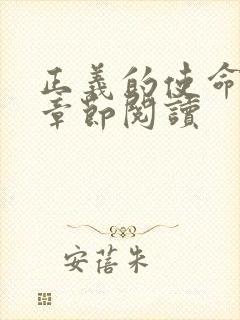 正義的使命
章節閱讀
安蓓朱